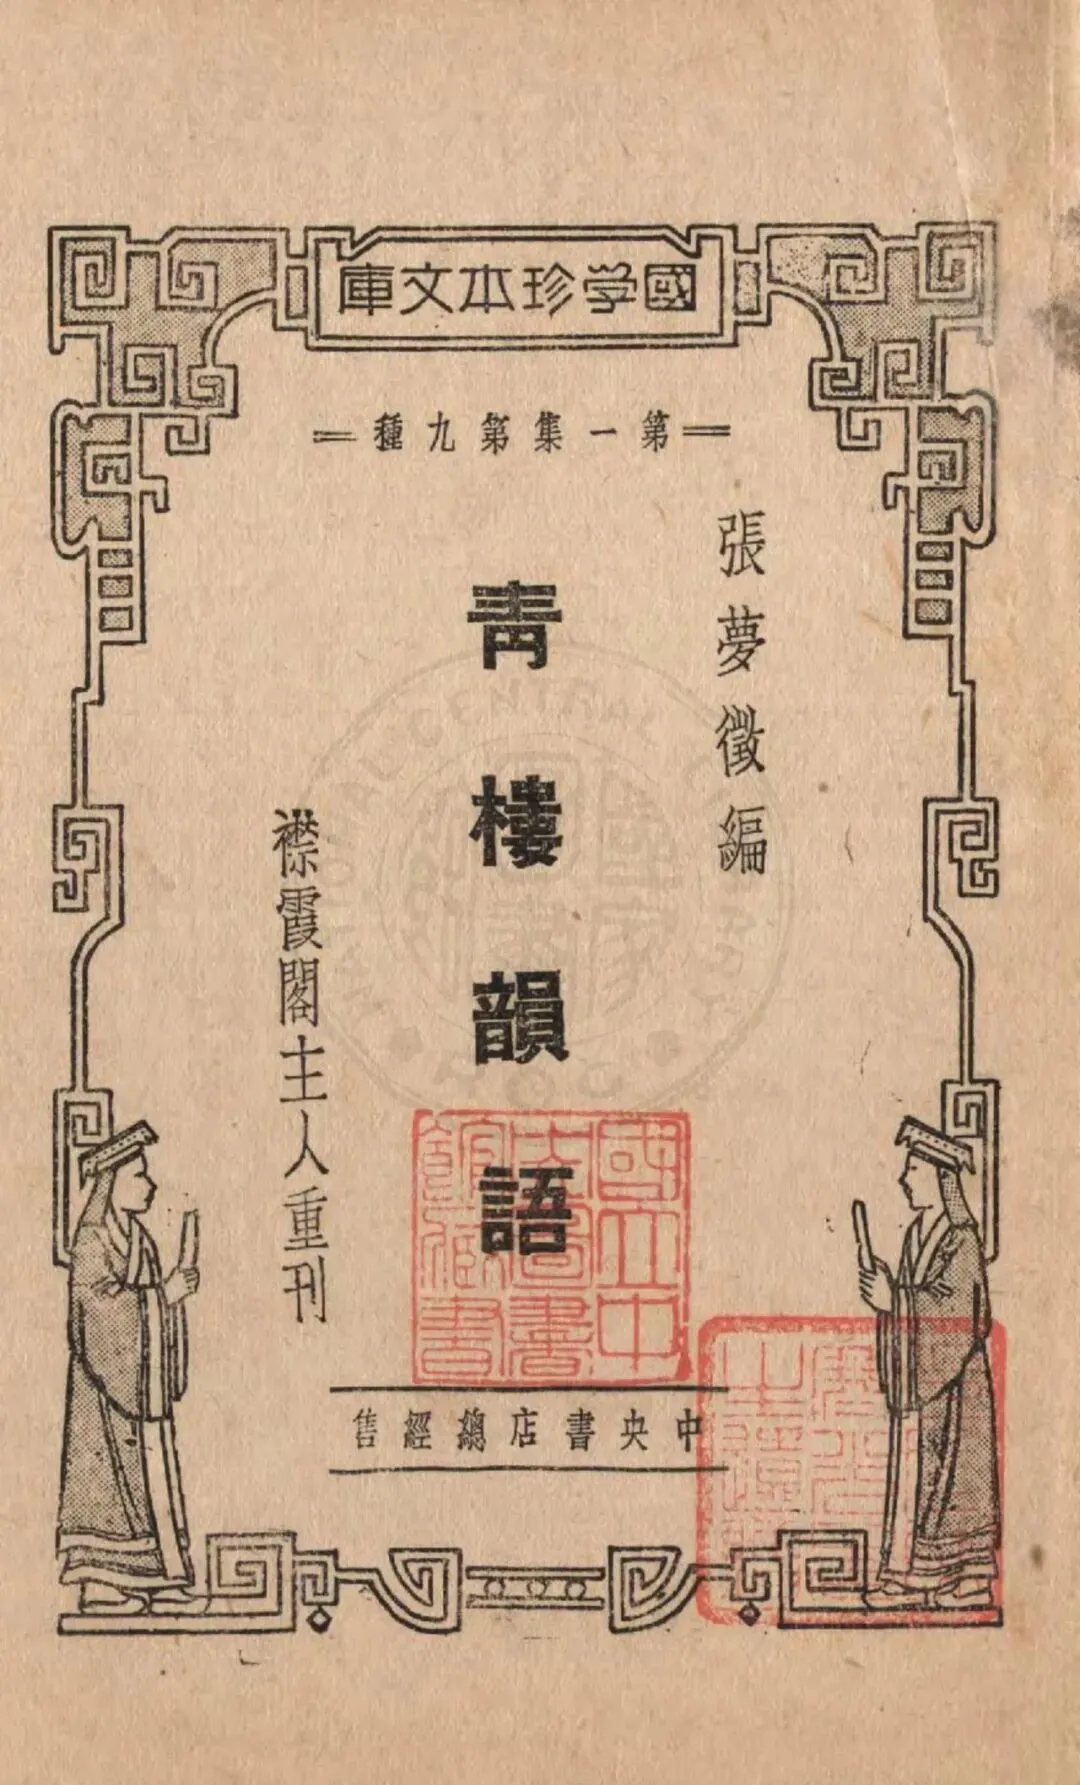 國学珍本文庫
第一集第九種
張夢徵編
青樓韻語
襟霞閣主人重刊
中央書店總經售
國立中
央圖書
館藏書
NATIONAL CENTRAL LIBRARY
國家
圖書